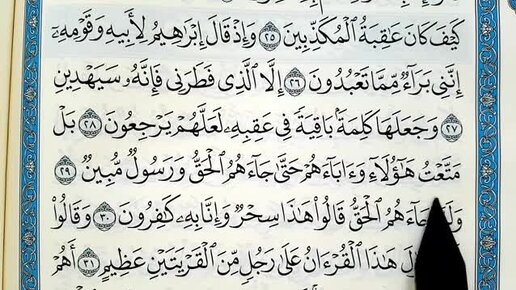 كَيْفَ كَانَ عَٰقِبَةُ ٱلْمُكَذِّبِينَ ٢٥ وَإِذْ قَالَ إِبْرَٰهِيمُ لِأَبِيهِ وَقَوْمِهِۦٓ
إِنَّنِى بَرَآءٌ مِّمَّا تَعْبُدُونَ ٢٦ إِلَّا ٱلَّذِى فَطَرَنِى فَإِنَّهُۥ سَيَهْدِينِ
٢٧ وَجَعَلَهَا كَلِمَةًۢ بَاقِيَةً فِى عَقِبِهِۦ لَعَلَّهُمْ يَرْجِعُونَ ٢٨ بَلْ
مَتَّعْتُ هَٰٓؤُلَآءِ وَءَابَآءَهُمْ حَتَّىٰ جَآءَهُمُ ٱلْحَقُّ وَرَسُولٌ مُّبِينٌ ٢٩
جَآءَهُمُ ٱلْحَقُّ قَالُوا۟ هَٰذَا سِحْرٌ وَإِنَّا بِهِۦ كَٰفِرُونَ ٣٠ وَقَالُوا۟
هَٰذَا ٱلْقُرْءَانُ عَلَىٰ رَجُلٍ مِّنَ ٱلْقَرْيَتَيْنِ عَظِيمٍ ٣١ أَهُمْ